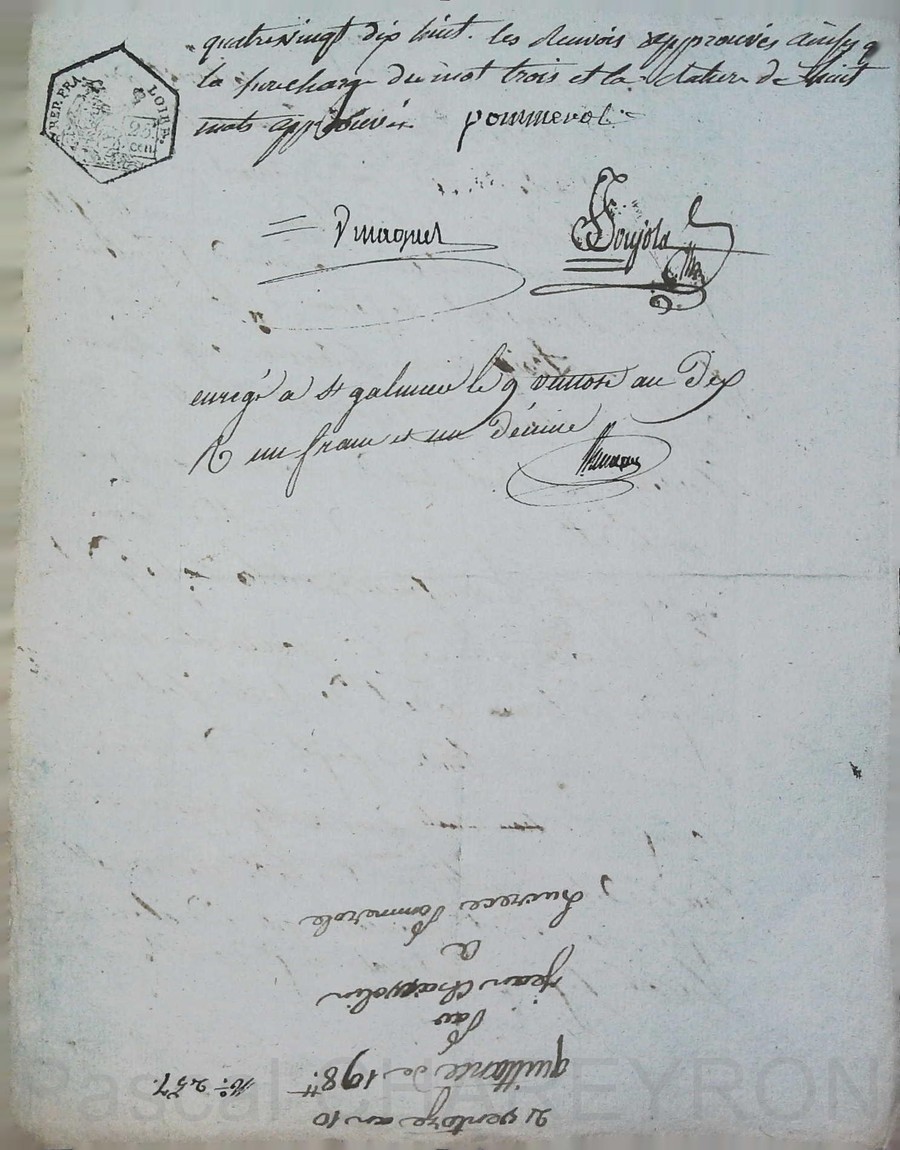 quatrevingt dix huit. les renvois approuvés ainsy q
la surcharge du mot trois et la rature de huit
mots approuvés pommerol
REP. FRA. LOIRE
25 cen
Pmaguet
Poujola
enregé a st galmier le 9 ventose an Dix
R un franc et un décime
2 ventoze an 10
quittance de 198tt. No. 257.
Par
jean Chazotin
a
Lucrece Pommerole
Pascal CHAREYRON